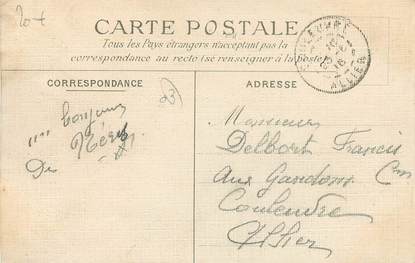 20 +
CARTE POSTALE
Tous les Pays étrangers n'acceptant pas la
correspondance au recto (se renseigner à la poste)
CORRESPONDANCE
ADRESSE
ALLIER
bonjour
De Néris
Monsieur
Delbort Francis
aux
Couleuvre
Allier